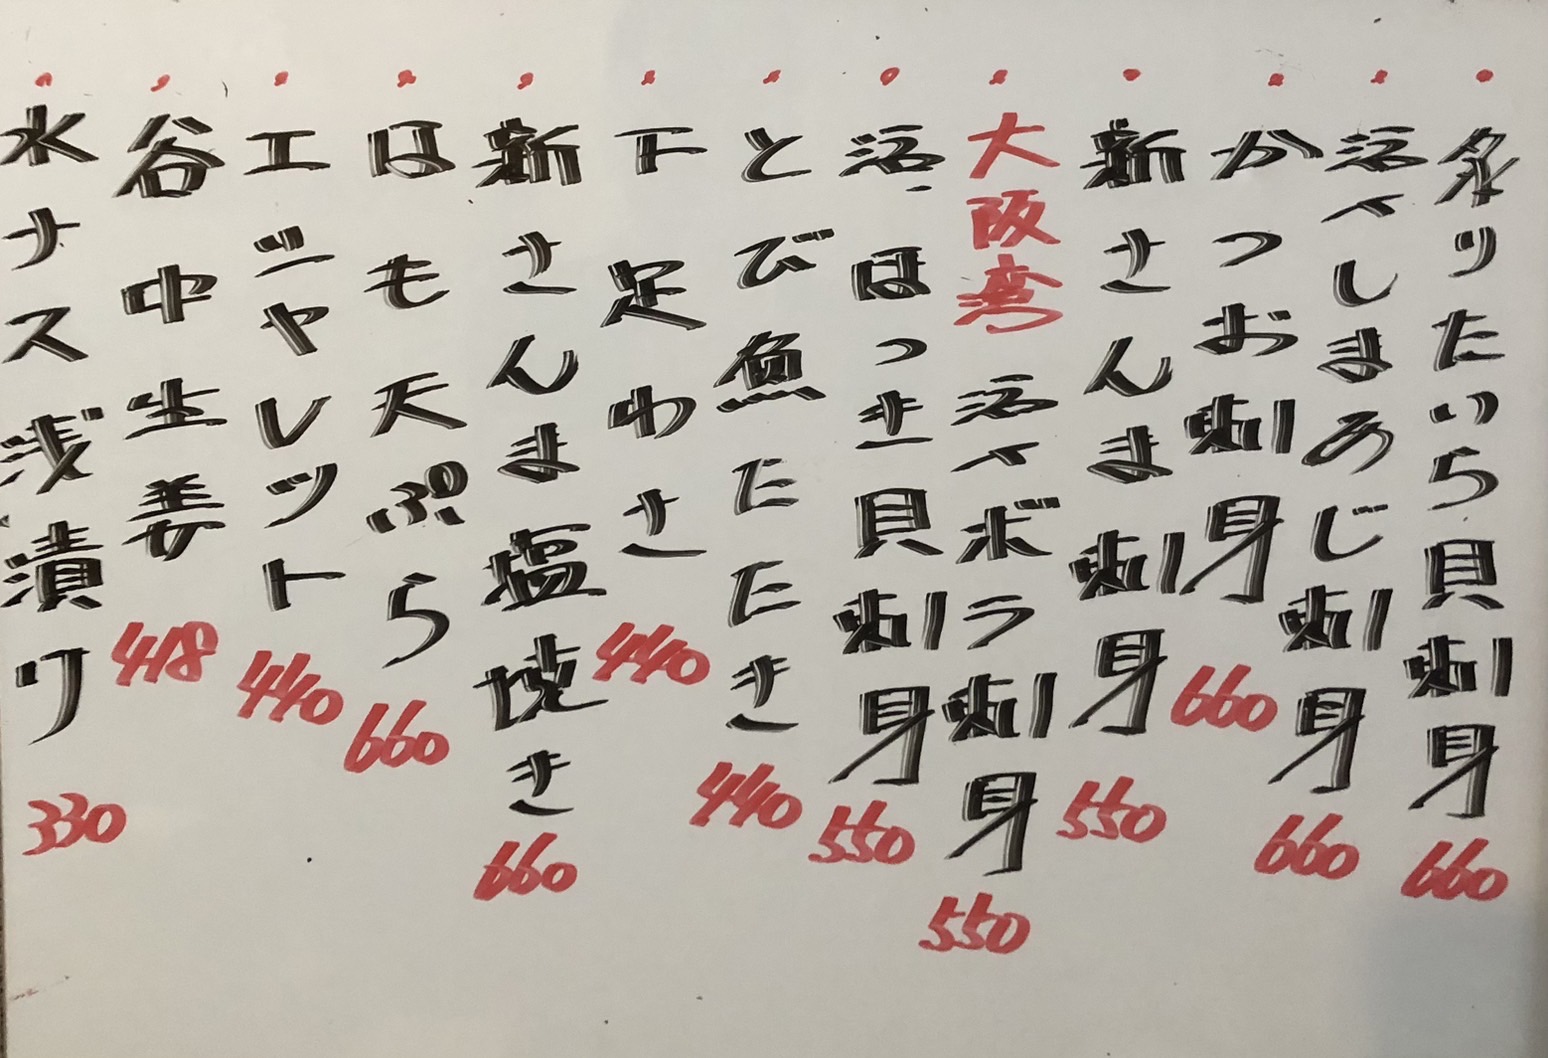 ・炙りたいら貝刺身 660
・活〆しまあじ刺身 660
・かつお刺身 660
・新さんま刺身 550
・大阪湾活〆ボラ刺身 550
・活ほっき貝刺身 550
・とび魚たたき 440
・下足わさ 440
・新さんま塩焼き 660
・はも天ぷら 660
・エシャレット 440
・谷中生姜 418
・水ナス浅漬け 330